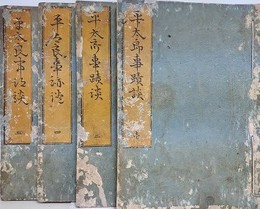 平太郎事蹟談
平太郎事蹟談
平太良事跡談 四
平太良事跡談